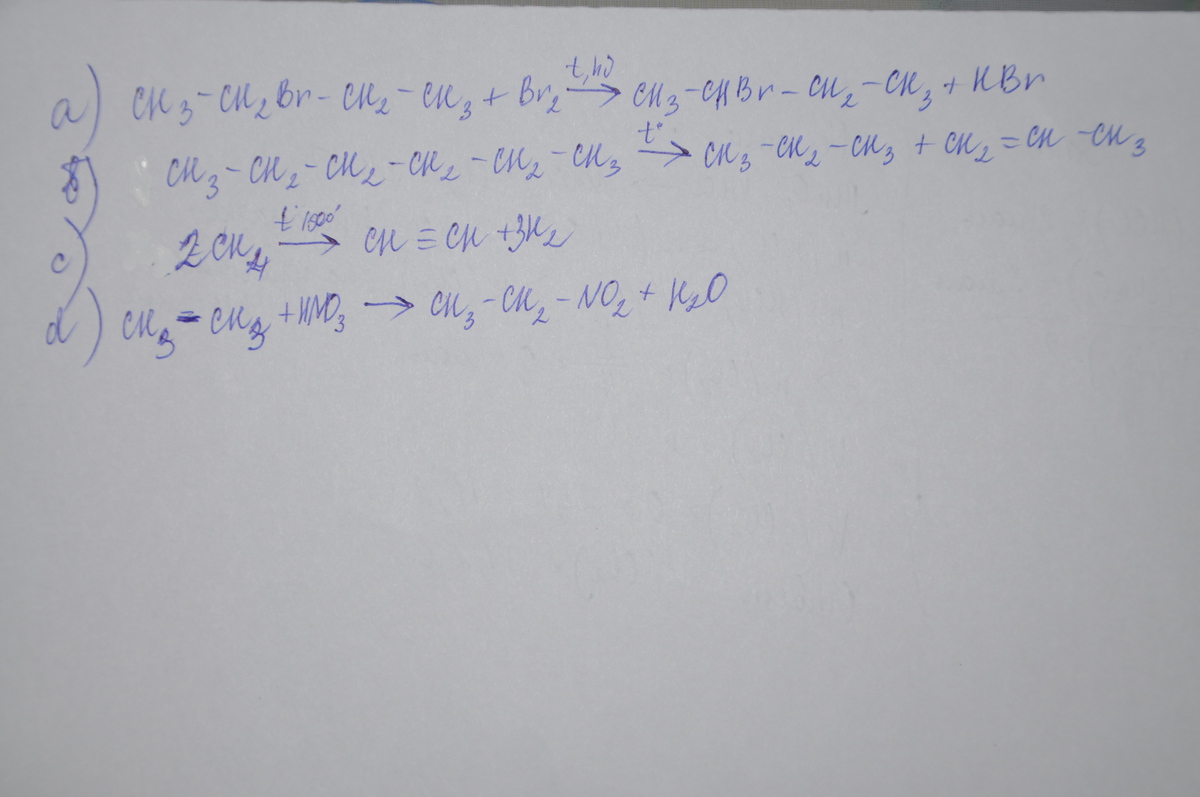 a) CH₃-CH₂Br-CH₂-CH₃ + Br₂ →(t, hν) CH₃-CHBr-CH₂-CH₃ + HBr
b) CH₃-CH₂-CH₂-CH₂-CH₂-CH₃ →(t°) CH₃-CH₂-CH₃ + CH₂=CH-CH₃
c) 2CH₄ →(t° 1500°) CH≡CH + 3H₂
d) CH₃-CH₃ + HNO₃ → CH₃-CH₂-NO₂ + H₂O